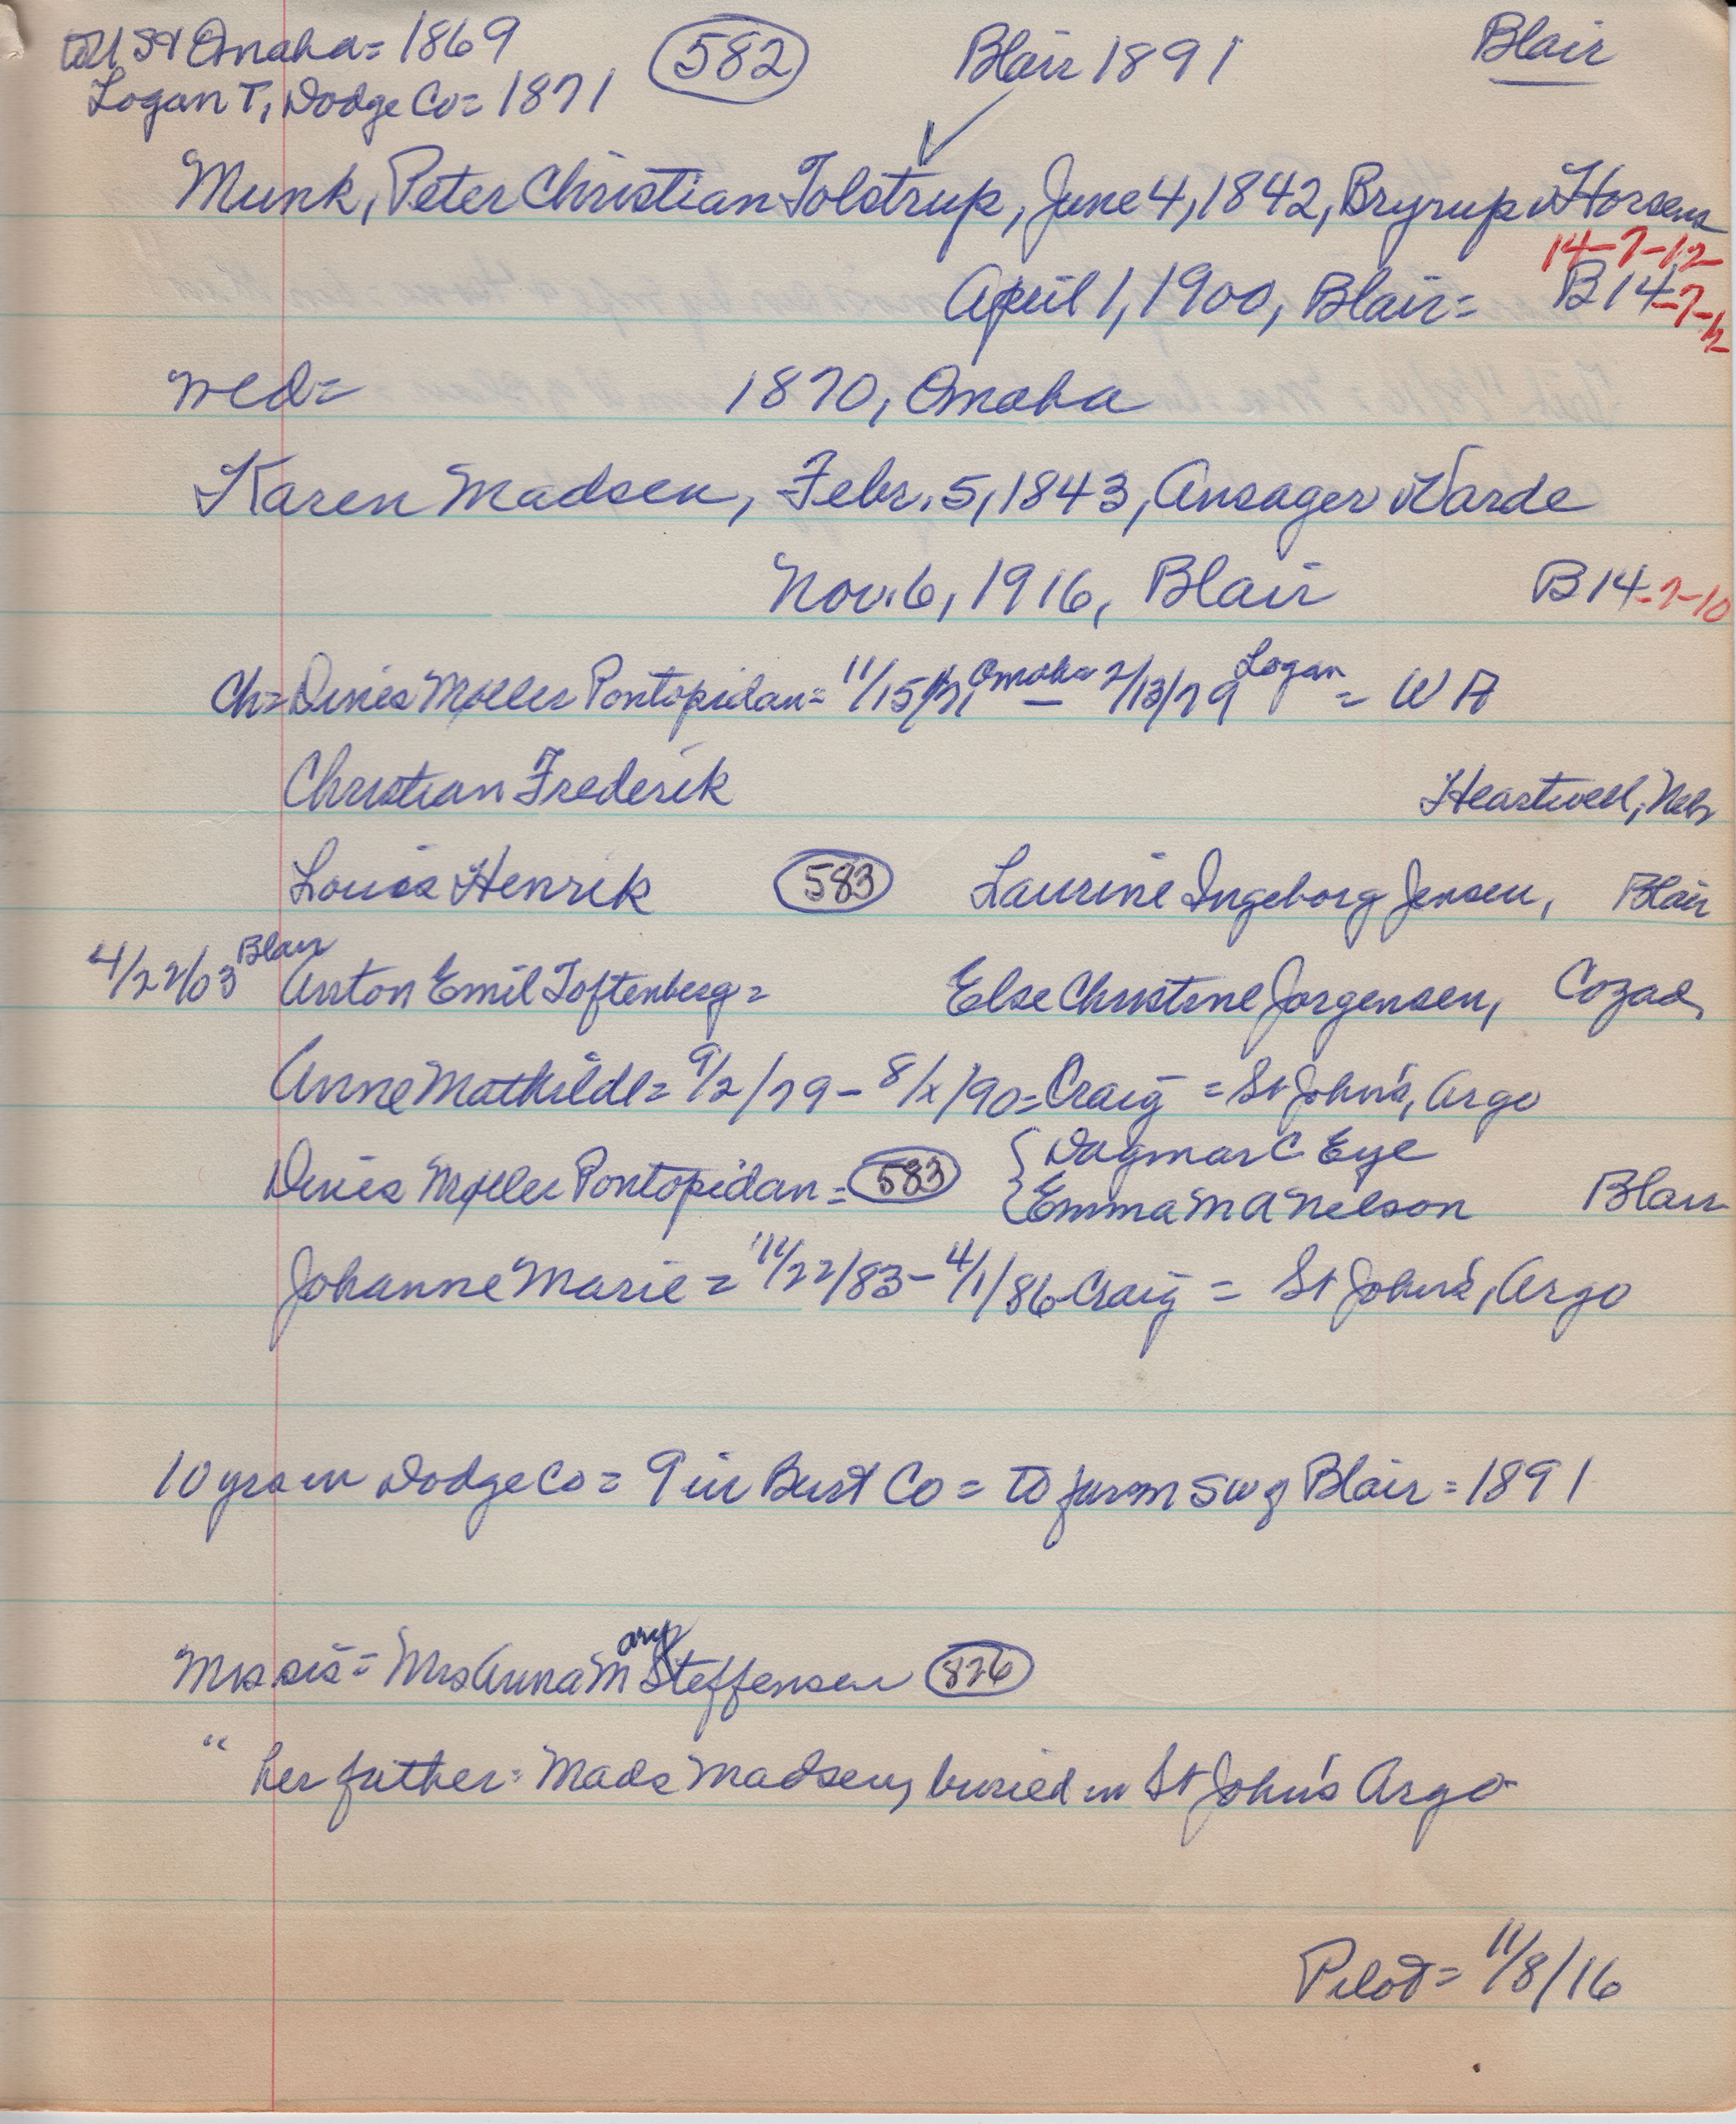 to U St Omaha = 1869
582
Blair 1891
Blair
Logan T, Dodge Co = 1871
Munk, Peter Christian Tolstrup, June 4, 1842, Bryrup v Horsens
14-7-12
April 1, 1900, Blair = B14-7-12
wed = 1870, Omaha
Karen Madsen, Febr. 5, 1843, Ansager v Varde
Nov. 6, 1916, Blair B14-7-10
Ch = Dines Møller Pontopidan = 11/15/71 Omaha - 2/13/79 Logan = W A
Christian Frederik Heartwell, Nebr
Louis Henrik 583 Laurine Ingeborg Jensen, Blair
4/22/03 Blair Anton Emil Toftenberg = Else Christine Jorgensen, Cozad
Anne Mathilde = 9/2/79 - 8/x/90 = Craig = St John's, Argo
Dines Møller Pontopidan = 583 { Dagmar C Eye
{ Emma M A Nelson Blair
Johanne Marie = 11/22/83 - 4/1/86 Craig = St John's, Argo
10 yrs in Dodge Co = 9 in Burt Co = to farm SW of Blair = 1891
Mrs sis = Mrs Anna Mary Steffensen 826
" her father = Mads Madsen, buried in St John's Argo
Pilot = 11/8/16